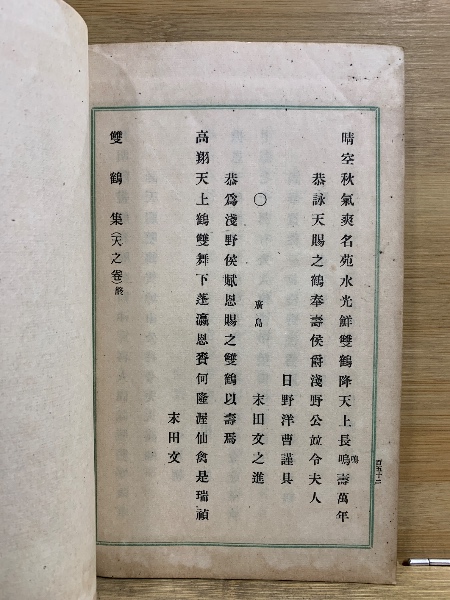 晴空秋氣爽名苑水光鮮雙鶴降天上長嗚壽萬年
鳴
恭詠天賜之鶴奉壽侯爵淺野公竝令夫人
日野洋曹謹具
○
廣島
末田文之進
恭爲淺野侯賦恩賜之雙鶴以壽焉
高翔天上鶴雙舞下蓬瀛恩賚何隆渥仙禽是瑞禎
末田文
雙鶴集（天之卷）終
百五十二